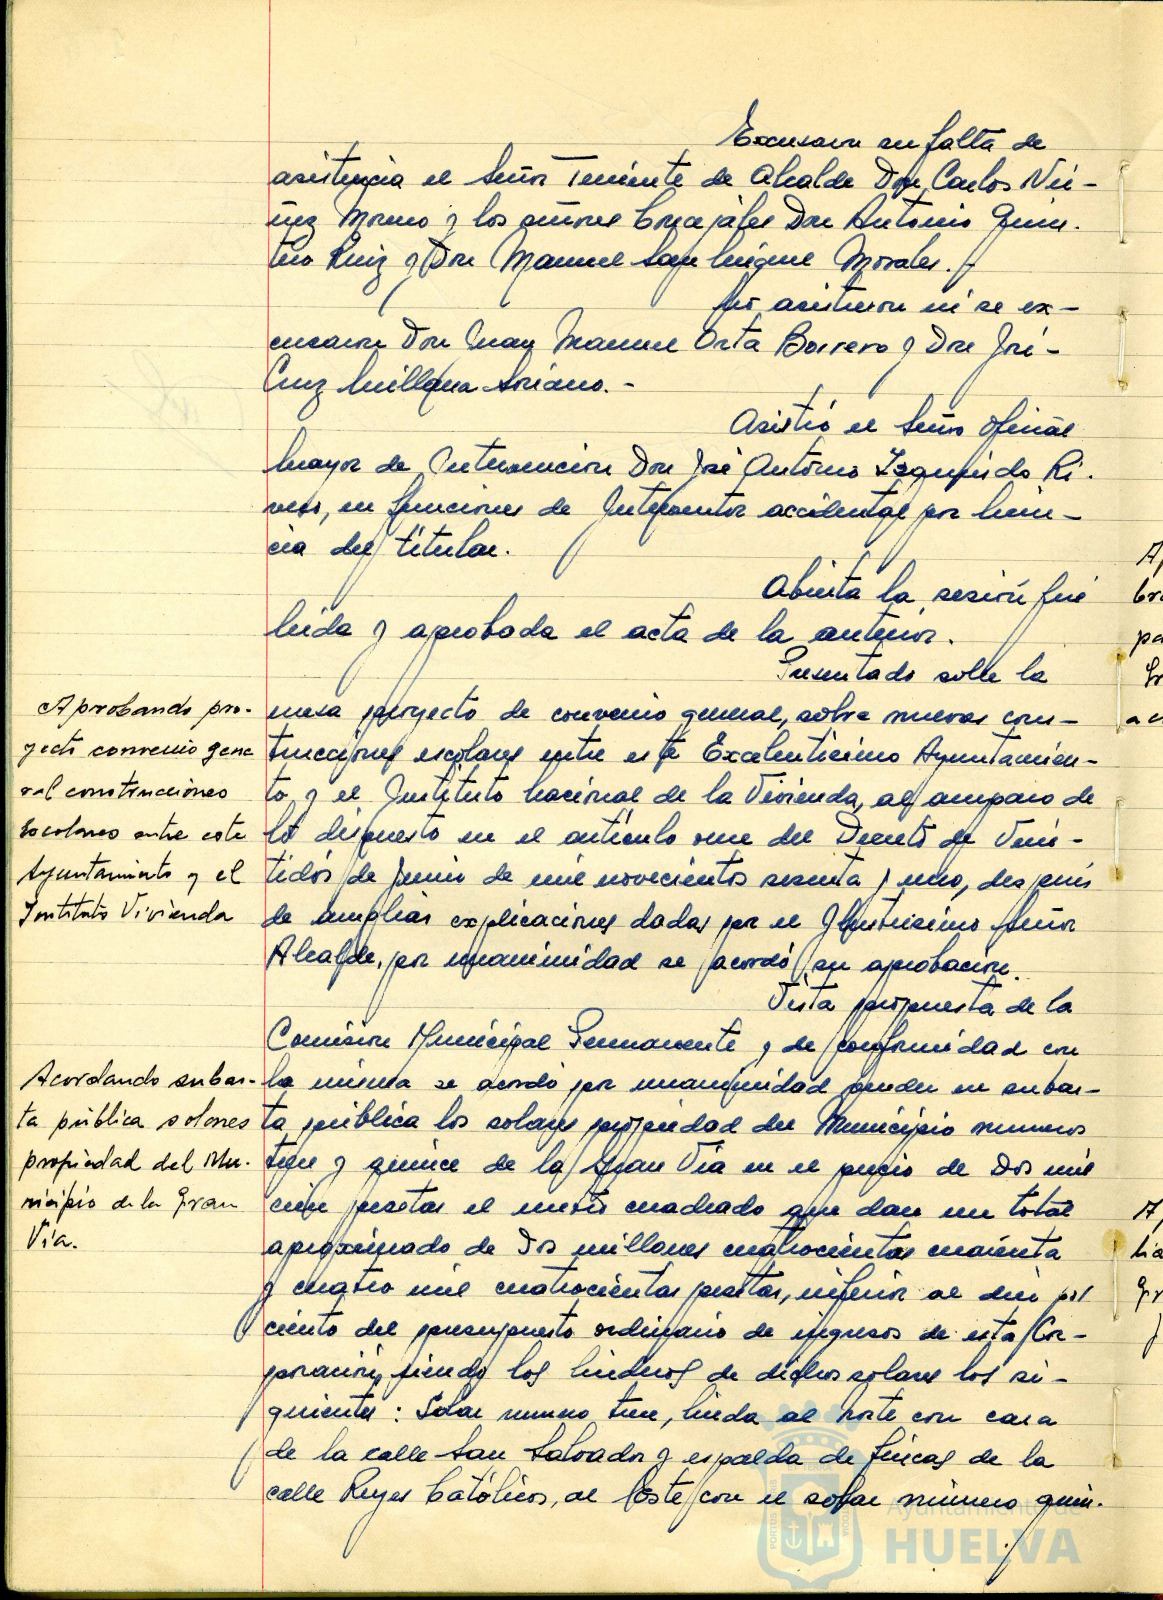 Excusaron su falta de
asistencia el Señor Teniente de Alcalde Don Carlos Nú-
ñez Moreno y los señores Concejales Don Antonio Quin-
tero Ruiz y Don Manuel Sanmiguel Morales.-
No asistieron ni se ex-
cusaron Don Juan Manuel Orta Borrero y Don José
Cruz Soriano.-
Asistió el Señor Oficial
Mayor de Intervención Don José Antonio Izquierdo Ri-
vero, en funciones de Interventor accidental por licen-
cia del titular.
Abierta la sesión fué
leida y aprobada el acta de la anterior.
Presentado sobre la
Aprobando pro-
yecto convenio gene
ral construcciones
escolares entre este
Ayuntamiento y el
Instituto Vivienda
mesa proyecto de convenio general, sobre nuevas cons-
trucciones escolares entre este Excelentísimo Ayuntamien-
to y el Instituto Nacional de la Vivienda, al amparo de
lo dispuesto en el artículo once del Decreto de Vein-
tidós de Junio de mil novecientos sesenta y uno, después
de amplias explicaciones dadas por el Ilustrísimo Señor
Alcalde, por unanimidad se acordó su aprobación.
Vista propuesta de la
Comisión Municipal Permanente y de conformidad con
Acordando subas-
ta pública solares
propiedad del Mu-
nicipio de la Gran
Vía.
la misma se acordó por unanimidad vender en subas-
ta pública los solares propiedad del Municipio números
trece y quince de la Gran Vía en el precio de Dos mil
cien pesetas el metro cuadrado que dan un total
aproximado de Dos millones cuatrocientas cuarenta
y cuatro mil cuatrocientas pesetas, inferior al diez por
ciento del presupuesto ordinario de ingresos de esta Cor-
poración, siendo los linderos de dichos solares los si-
guientes: Solar número trece, linda al Norte con casa
de la calle San Salvador y espalda de fincas de la
calle Reyes Católicos, al Este con el solar número quin-
Ayuntamiento de
HUELVA